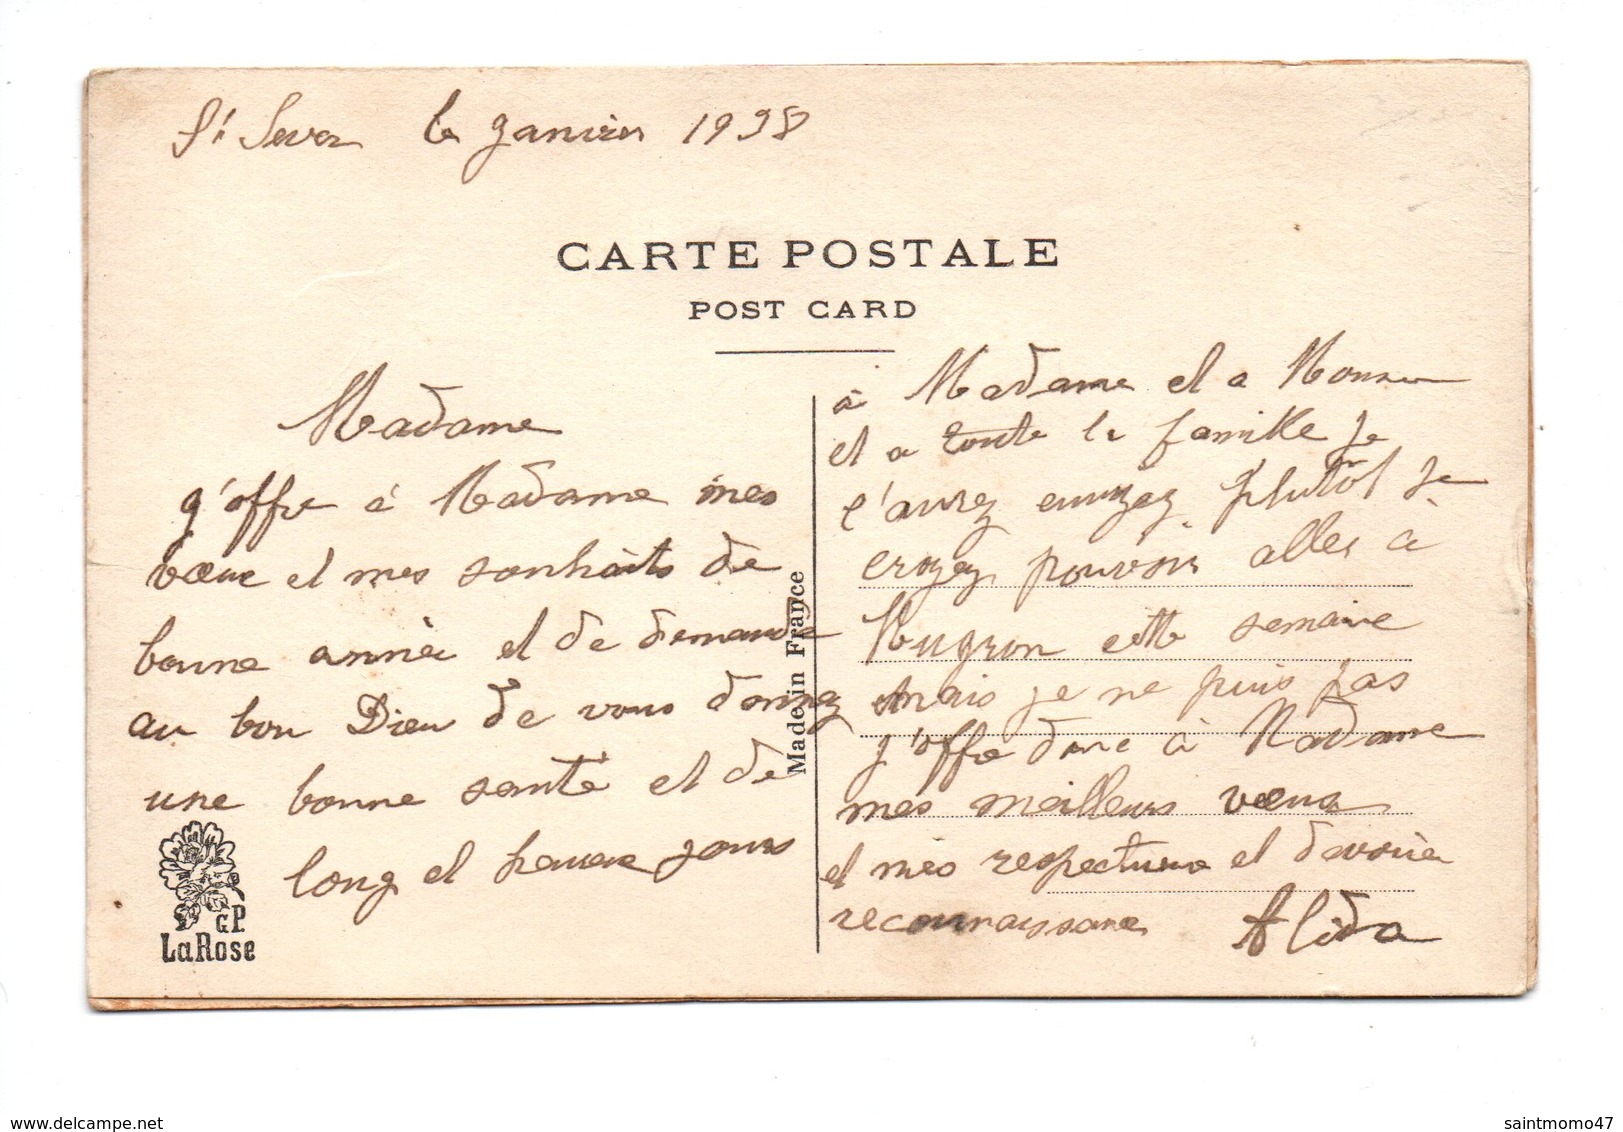 St Sever le janvier 1938
CARTE POSTALE
POST CARD
Madame
j'offre à Madame mes
vœux et mes souhaits de
bonne année et de demande
au bon Dieu de vous donnez
une bonne santé et de
long et heureux jours
Made in France
GP
LaRose
à Madame et a Monsieur
et a toute la famille Je
l'aurez envoyez plutôt Je
croyez pouvoir aller à
cette semaine
mais je ne puis pas
j'offre donc à Madame
mes meilleurs vœux
et mes respectueux et devoirs
reconnaissance Alida
saintmomo47